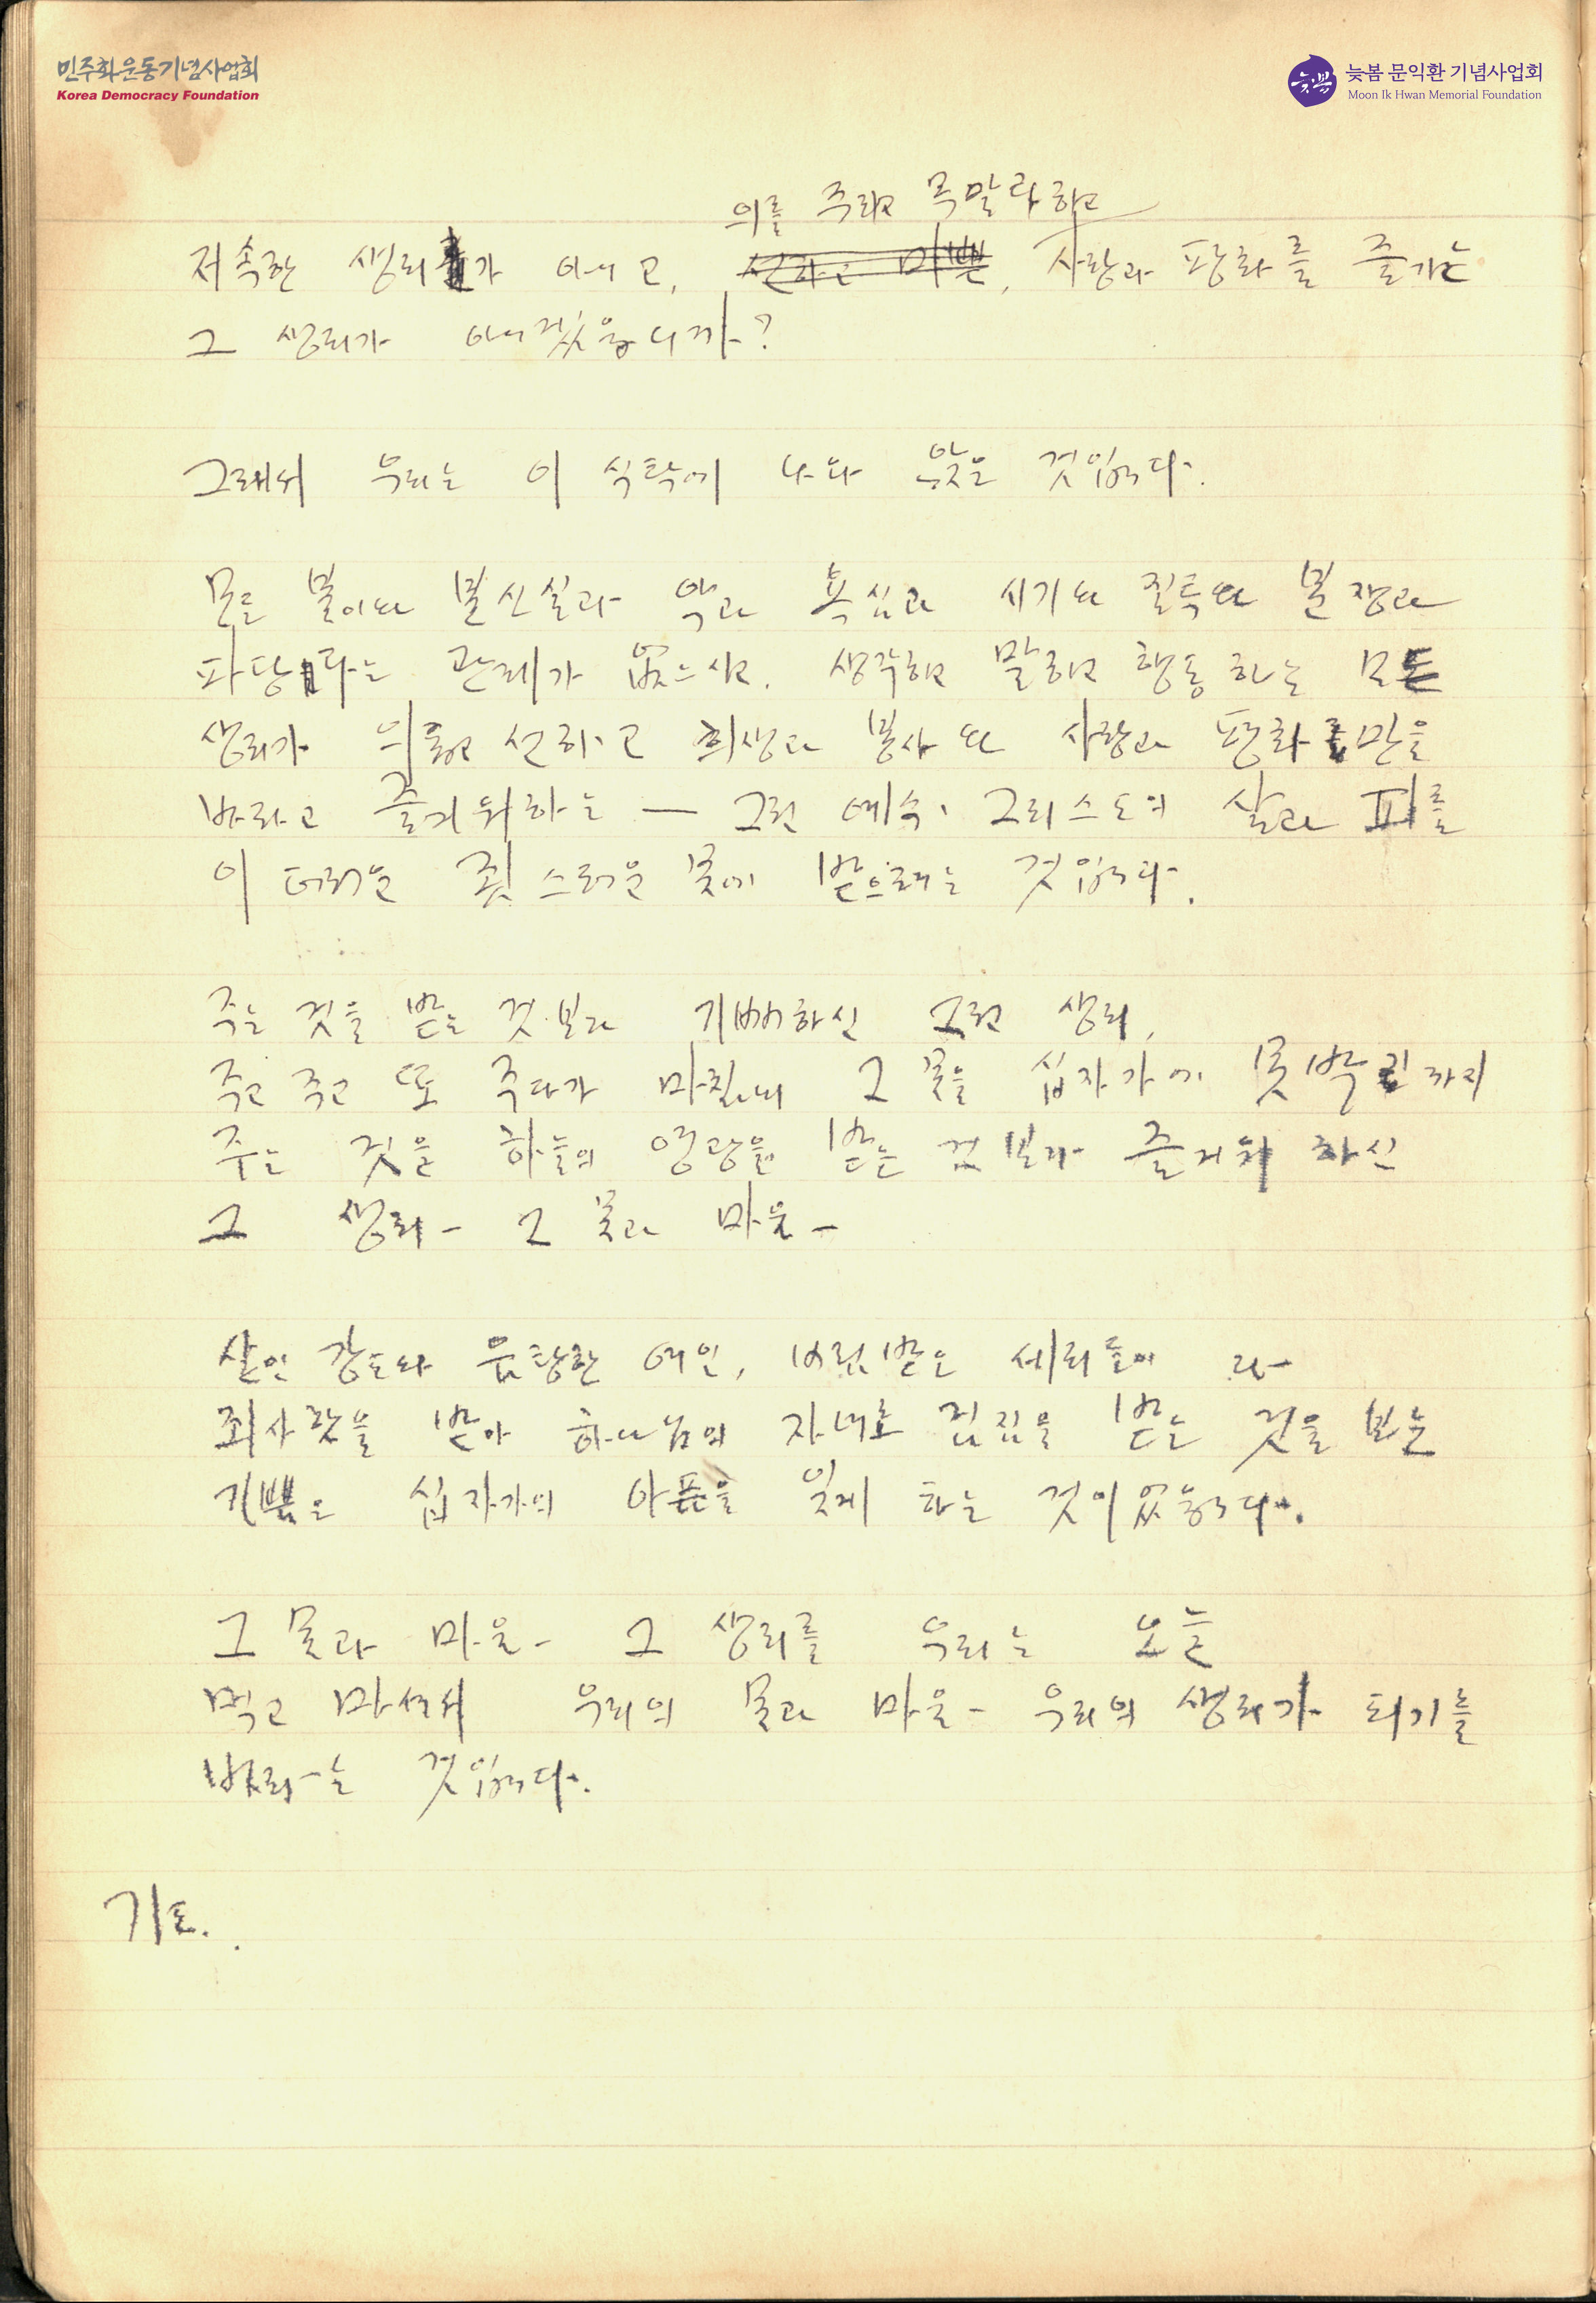 민주화운동기념사업회
Korea Democracy Foundation
늦봄
늦봄 문익환 기념사업회
Moon Ik Hwan Memorial Foundation
의를 주리고 목말라하고
저속한 생리가 아니고, 선하고 미쁜, 사랑과 평화를 즐기는
그 생리가 아니겠읍니까?
그래서 우리는 이 식탁에 나와 앉은 것입니다.
모든 불의와 불신실과 악과 욕심과 시기와 질투와 분쟁과
파당과는 관계가 없으시고. 생각하고 말하고 행동하는 모든
생리가 의롭고 선하고 희생과 봉사와 사랑과 평화만을
바라고 즐거워하는 — 그런 예수 그리스도의 살과 피를
이 더러운 죄스러운 몸에 받으려는 것입니다.
주는 것을 받는 것보다 기뻐하신 그런 생리,
주고 주고 또 주다가 마침내 그 몸을 십자가에 못박힐까지
주는 것을 하늘의 영광을 받는 것보다 즐거워 하신
그 생리 - 그 몸과 마음 -
살인 강도와 음탕한 여인, 버림받은 세리들이 다
죄사함을 받아 하나님의 자녀로 받는 것을 보는
기쁨은 십자가의 아픔을 잊게 하는 것이었읍니다.
그 몸과 마음 - 그 생리를 우리는 오늘
먹고 마셔서 우리의 몸과 마음 - 우리의 생리가 되기를
바라는 것입니다.
기도.